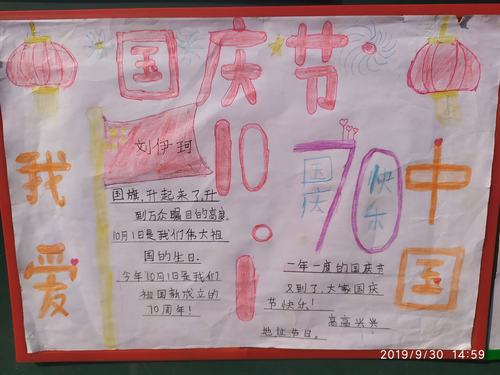 国庆节
我爱
刘伊珂
10.1
国庆
70
快乐
中国
国旗,升起来了,升
到万众瞩目的高度.
10月1日是我们伟大祖
国的生日.
今年10月1日是我们
祖国新成立的
70周年!
一年一度的国庆节
又到了,大家国庆
节快乐!
高高兴兴
地过节日。
2019/9/30 14:59